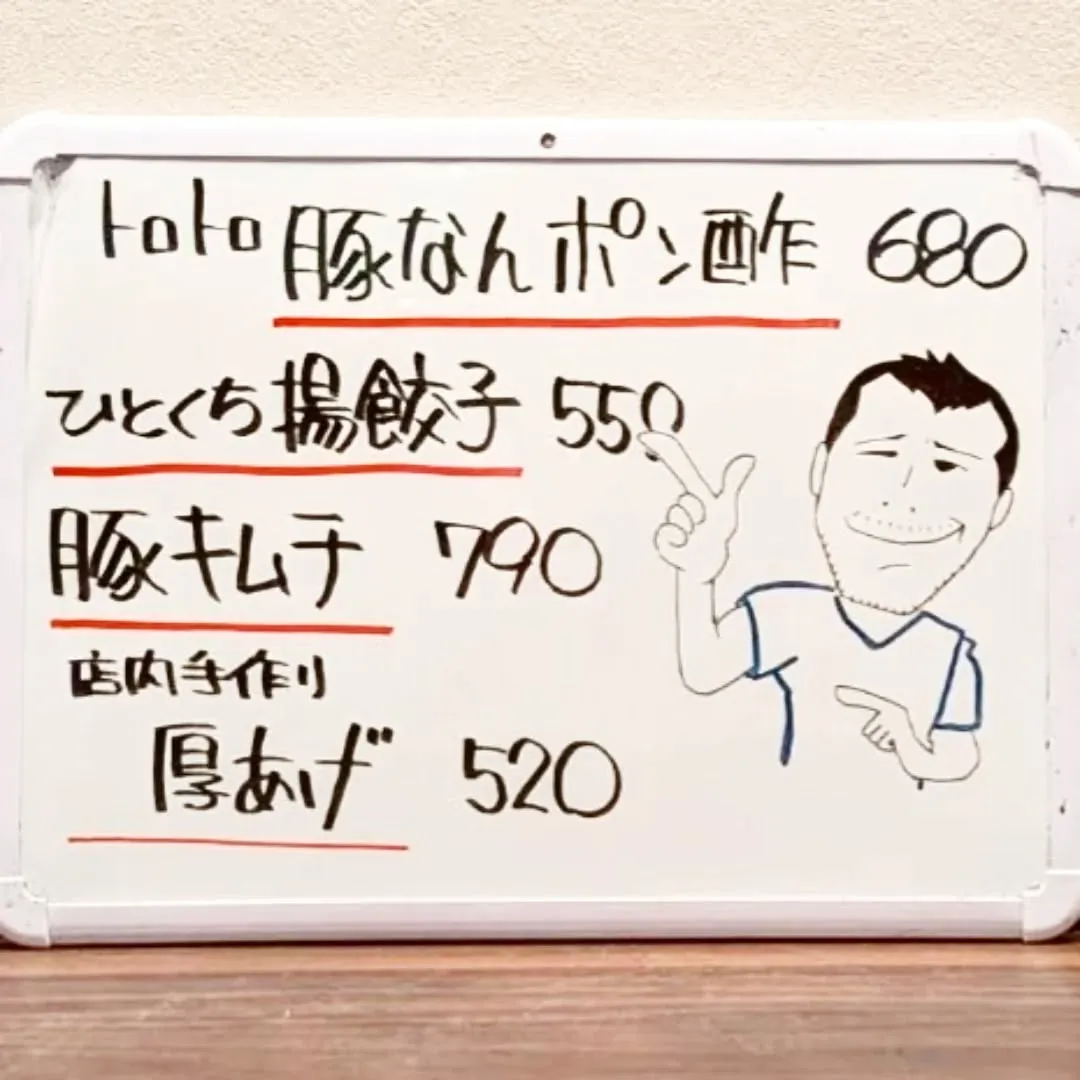 トロトロ 豚なんポン酢 680
ひとくち揚餃子 550
豚キムチ 790
店内手作り
厚あげ 520